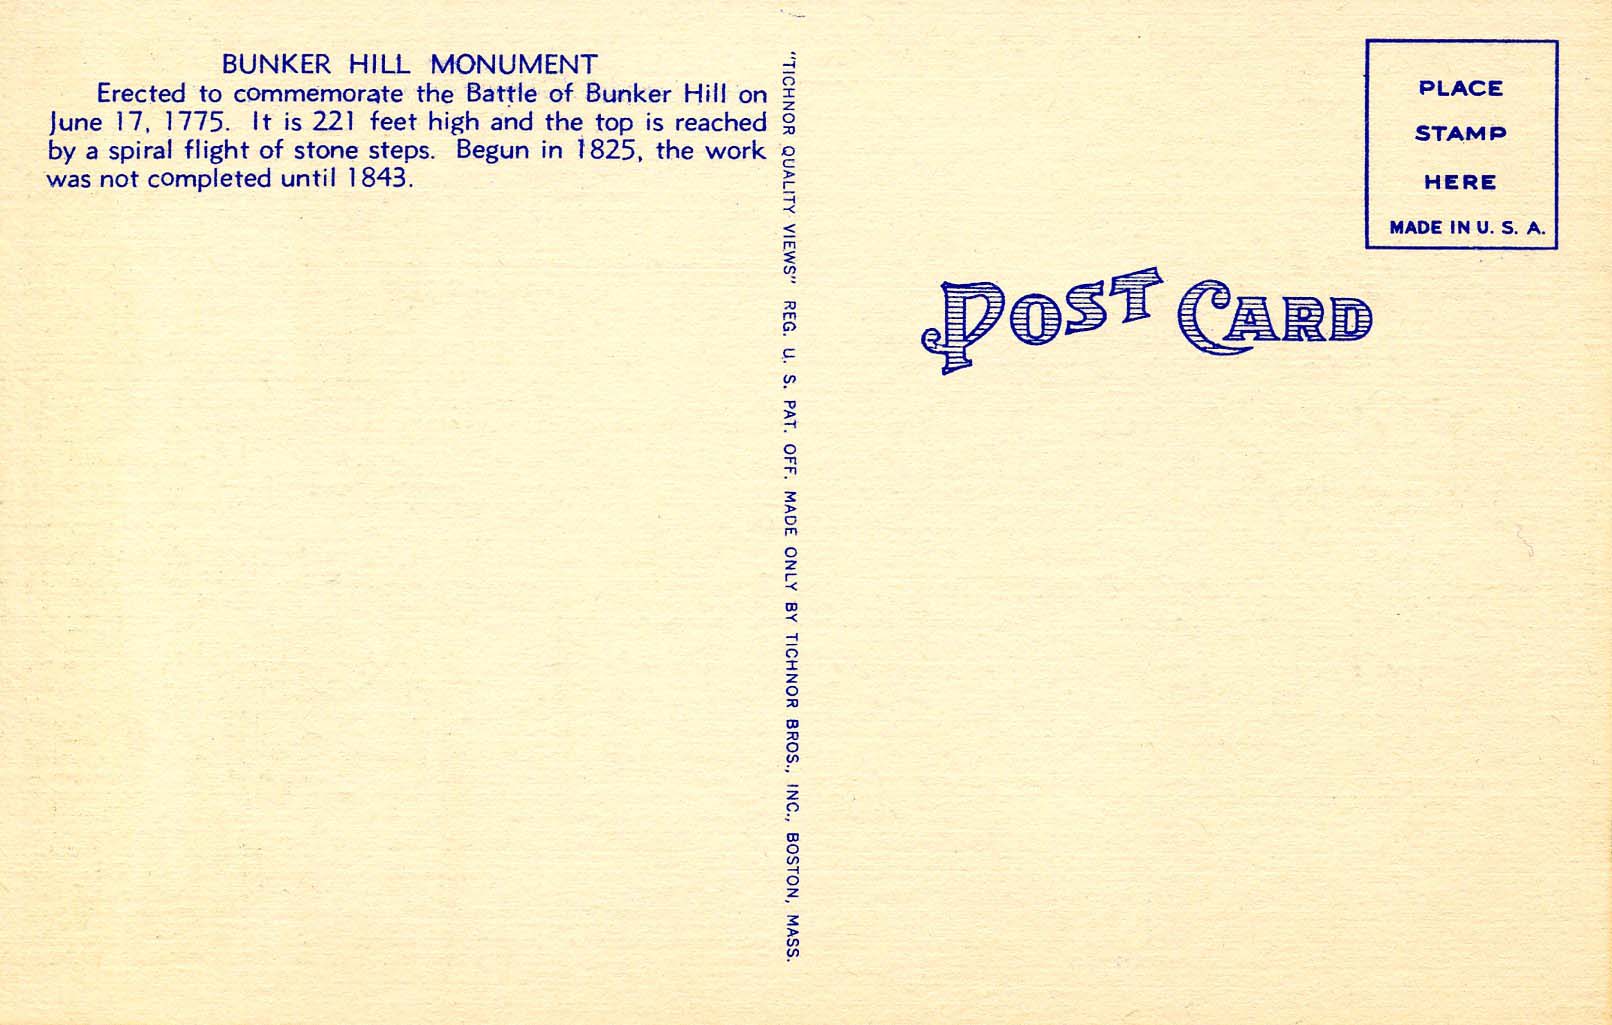 BUNKER HILL MONUMENT
Erected to commemorate the Battle of Bunker Hill on
June 17, 1775. It is 221 feet high and the top is reached
by a spiral flight of stone steps. Begun in 1825, the work
was not completed until 1843.
"TICHNOR QUALITY VIEWS" REG. U. S. PAT. OFF. MADE ONLY BY TICHNOR BROS., INC., BOSTON, MASS.
PLACE
STAMP
HERE
MADE IN U. S. A.
POST CARD